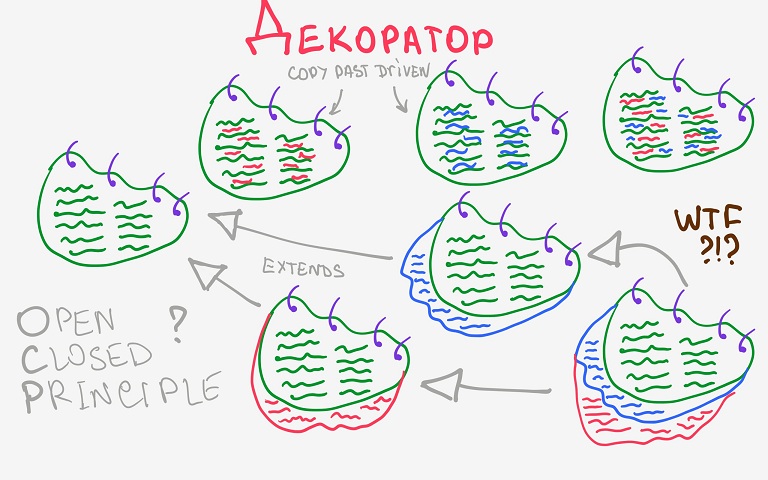 ДЕКОРАТОР
COPY PAST DRIVEN
WTF
?!?
EXTENDS
OPEN ?
CLOSED
PRINCIPLE